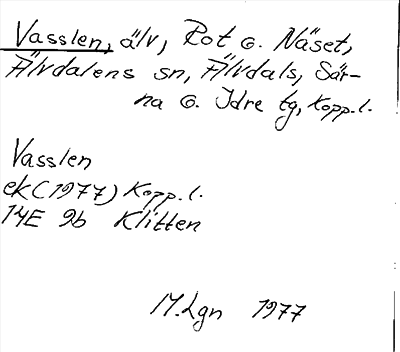 Vasslen, älv, Rot o. Näset,
Älvdalens sn, Älvdals, Sär-
na o. Idre tg, Kopp.l.
Vasslen
ek(1977) Kopp.l.
14E 9b Klitten
M.Lgn 1977